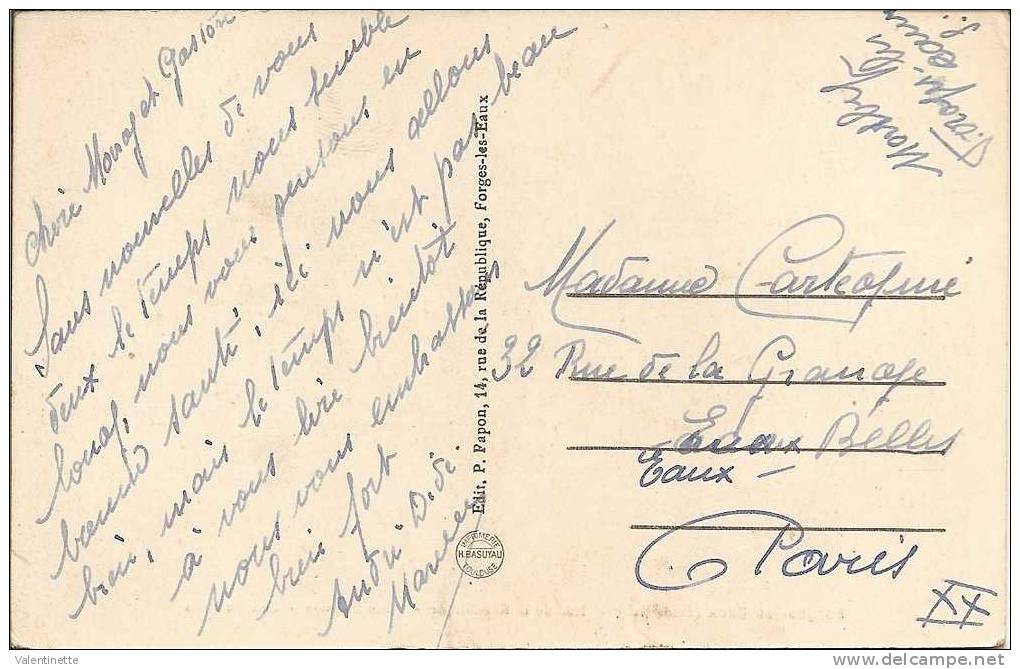 Chère Mary et Gaston
Sans nouvelles de vous
deux le temps nous semble
long, nous vous pensons en
bonne santé, ici nous allons
bien, mais le temps n'est pas beau
à vous lire bientôt
nous vous embrassons
bien fort
André Dédé
Marcel
Edit. P. Papon, 14, rue de la République, Forges-les-Eaux
IMPRIMERIE
H. BASUYAU
TOULOUSE
Forges-les
Madame
32 Rue de la Grange
Eaux Belles
Eaux
Paris
XX
Valentinette
delcampe.net